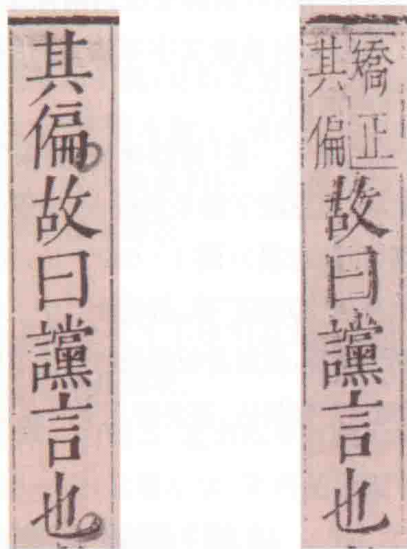 矯正
其偏
故曰讜言也
其偏故曰讜言也